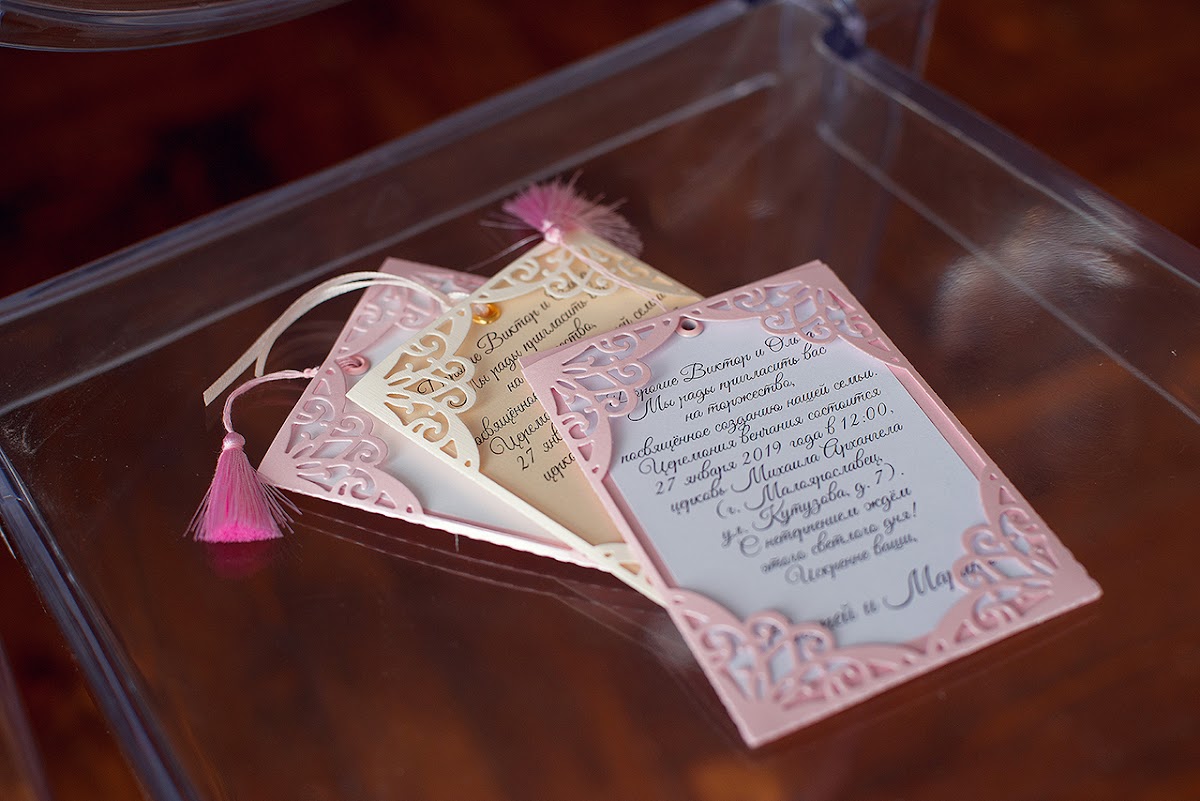 Дорогие Виктор и Ольга
Мы рады пригласить вас
на торжество,
посвящённое созданию нашей семьи.
Церемония венчания состоится
27 января 2019 года в 12:00,
церковь Михаила Архангела
(г. Малоярославец,
ул. Кутузова, д. 7).
С нетерпением ждём
этого светлого дня!
Искренне ваши,
и Мария
Виктор и
Мы рады пригласить
на
семьи
посвящённое
Церемо
27 янв
церко